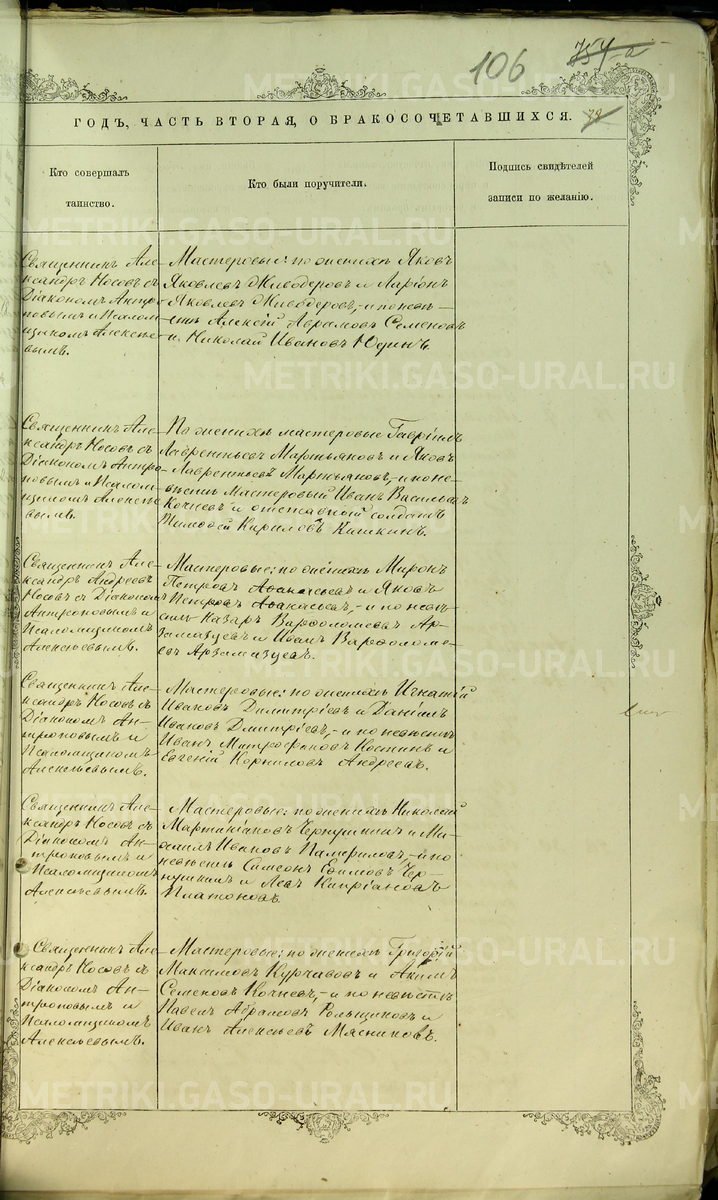 106
754-а
METRIKI.GASO-URAL.RU
ГОДЪ, ЧАСТЬ ВТОРАЯ, О БРАКОСОЧЕТАВШИХСЯ.
Кто совершалъ
таинство.
Кто были поручители.
Подпись свидѣтелей
записи по желанію.
Священникъ Але-
ксандръ Носовъ съ
Діакономъ Антро-
повымъ и Псалом-
щикомъ Алексѣе-
вымъ.
Мастеровые: по женихѣ Яковъ
Яковлевъ Живодеровъ и Ларіонъ
Яковлевъ Живодеровъ,-и по невѣ-
стѣ Алексѣй Аврамовъ Семеновъ
и Николай Ивановъ Юдинъ.
Священникъ Але-
ксандръ Носовъ съ
Діакономъ Антро-
повымъ и Псалом-
щикомъ Алексѣе-
вымъ.
По женихѣ мастеровые Гавріилъ
Лаврентьевъ Мартьяновъ и Яковъ
Лаврентьевъ Мартьяновъ,-и по не-
вѣстѣ Мастеровый Иванъ Васильевъ
Кочневъ и отставной солдатъ
Тимофей Кириловъ Кашкинъ.
Священникъ Але-
ксандръ Андреевъ
Носовъ съ Діакономъ
Антроповымъ и
Псаломщикомъ
Алексѣевымъ.
Мастеровые: по женихѣ Миронъ
Петровъ Аѳанасьевъ и Яковъ
Петровъ Аѳанасьевъ,-и по невѣ-
стѣ Назаръ Варѳоломеевъ Ар-
замазцевъ и Иванъ Варѳоломе-
евъ Арзамазцевъ.
Священникъ Але-
ксандръ Носовъ съ
Діакономъ Ан-
троповымъ и
Псаломщикомъ
Алексѣевымъ.
Мастеровые: по женихѣ Игнатій
Ивановъ Димитріевъ и Даніилъ
Ивановъ Дмитріевъ,-и по невѣстѣ
Иванъ Митрофановъ Костинъ и
Евгеній Корниловъ Андреевъ.
Священникъ Але-
ксандръ Носовъ съ
Діакономъ Ан-
троповымъ и
Псаломщикомъ
Алексѣевымъ.
Мастеровые: по женихѣ Николай
Мартиніановъ Чернушкинъ и Ми-
хаилъ Ивановъ Памфиловъ,-и по
невѣстѣ Симеонъ Ефимовъ Чер-
нушкинъ и Левъ Кипріановъ
Платоновъ.
Священникъ Але-
ксандръ Носовъ съ
Діакономъ Ан-
троповымъ и
Псаломщикомъ
Алексѣевымъ.
Мастеровые: по женихѣ Григорій
Максимовъ Курчавовъ и Акимъ
Семеновъ Кочневъ,-и по невѣстѣ
Павелъ Абрамовъ и
Иванъ Алексѣевъ Мясниковъ.